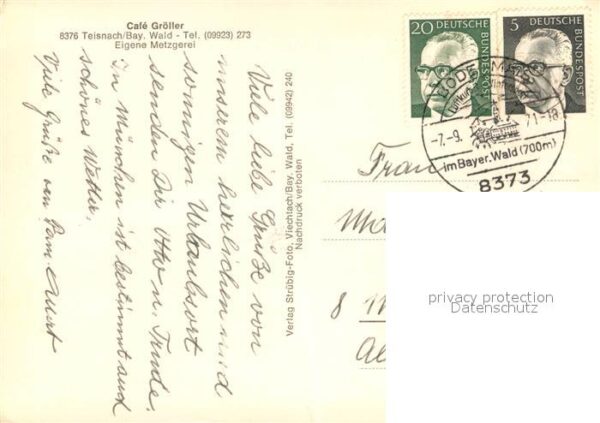 Café Gröller
8376 Teisnach/Bay. Wald - Tel. (09923) 273
Eigene Metzgerei
Viele liebe Grüße von
unserem herrlichen und
sonnigen Urlaubsort
senden Dir Otto u. Trude.
In München ist bestimmt auch
schönes Wetter.
Viele Grüße von Fam.
Verlag Strübig-Foto, Viechtach/Bay. Wald, Tel. (09942) 240
Nachdruck verboten
20
DEUTSCHE
BUNDESPOST
5
DEUTSCHE
BUNDESPOST
BODENMAIS
-7.-9.
71-18
im Bayer. Wald (700m)
8373
Frau
8 M
privacy protection
Datenschutz